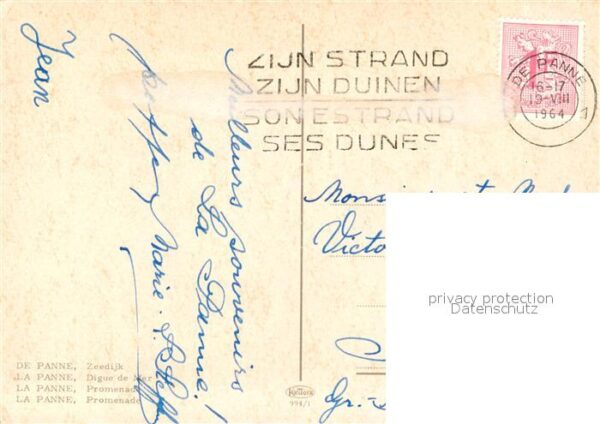 ZIJN STRAND
ZIJN DUINEN
SON ESTRAND
SES DUNES
DE PANNE
16-17
19-VIII
1964
1
Jean
Marie
Meilleurs souvenirs
de La Panne!
Monsieur et
privacy protection
Datenschutz
DE PANNE, Zeedijk
LA PANNE, Digue de Mer
LA PANNE, Promenade
LA PANNE, Promenade
994/1